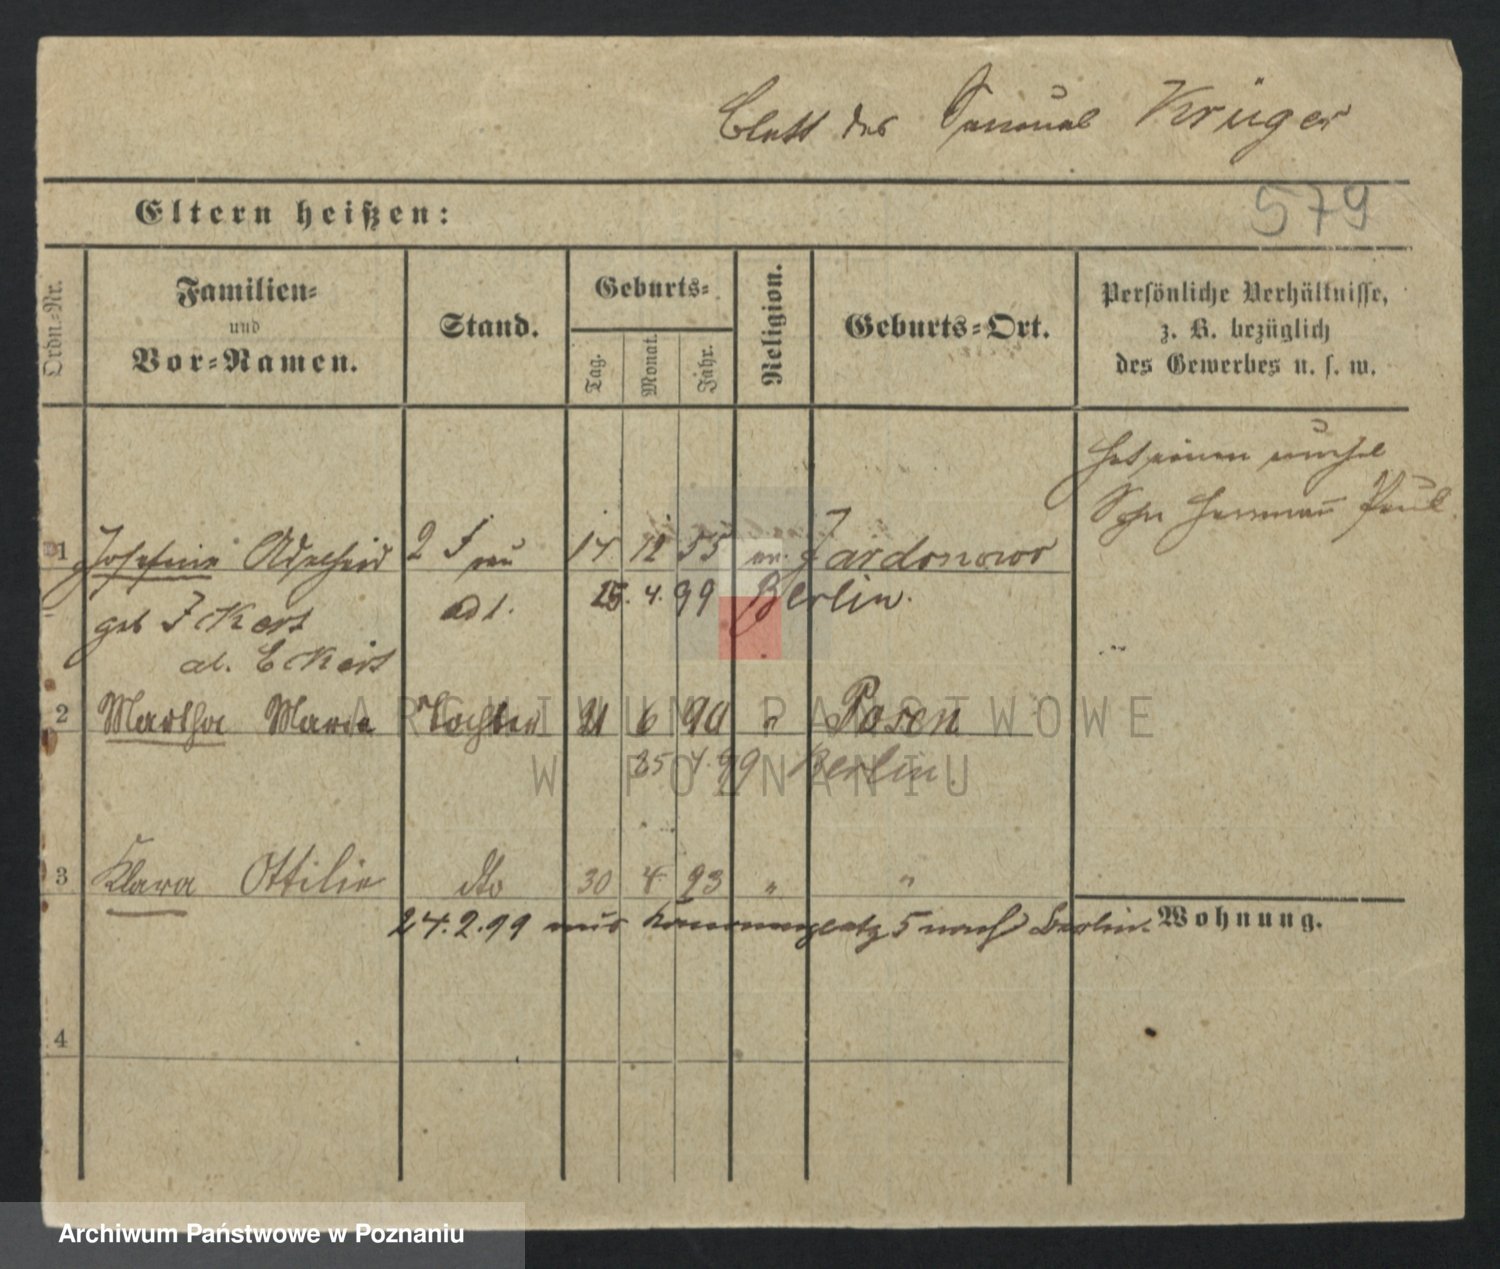 Blatt des Samuel Krüger
579
Eltern heißen:
Ordn.-Nr.
Familien-
und
Vor-Namen.
Stand.
Geburts-
Tag.
Monat.
Jahr.
Religion.
Geburts-Ort.
Persönliche Verhältnisse,
z. B. bezüglich
des Gewerbes u. s. w.
hat einen unehel
Sohn Hermann Paul
1 Josefine Adelheid 2 Frau 17 12 55 ev. Jardonowo
geb Ickert adt. 25. 4. 99 Berlin.
al. Eckert
2 Martha Maria Tochter 21 6 90 " Posen
25 4. 99 Berlin.
3 Klara Ottilie dto 30 4. 93 " "
24. 2. 99 aus 5 nach Berlin.
Wohnung.
4
ARCHIWUM PAŃSTWOWE
W POZNANIU
Archiwum Państwowe w Poznaniu